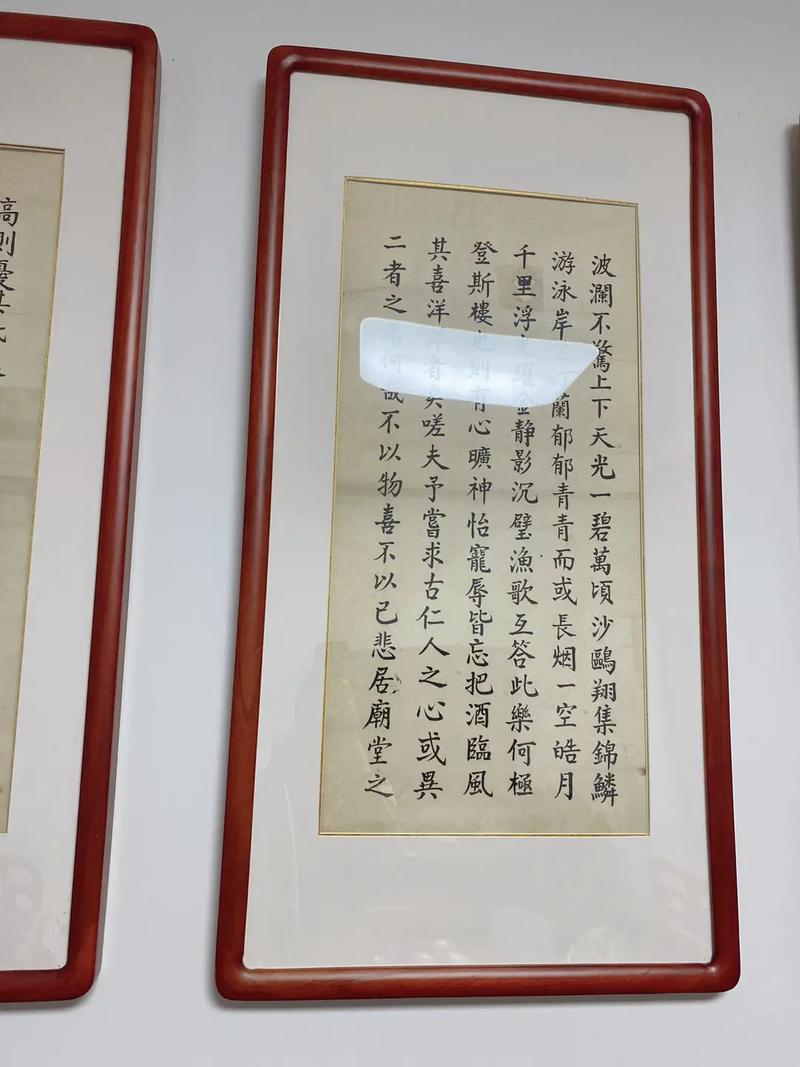 波瀾不驚上下天光一碧萬頃沙鷗翔集錦鱗
游泳岸芷汀蘭郁郁青青而或長烟一空皓月
千里浮光躍金静影沉璧漁歌互答此樂何極
登斯樓也則有心曠神怡寵辱皆忘把酒臨風
其喜洋洋者矣嗟夫予嘗求古仁人之心或異
二者之為何哉不以物喜不以己悲居廟堂之
高則憂其民